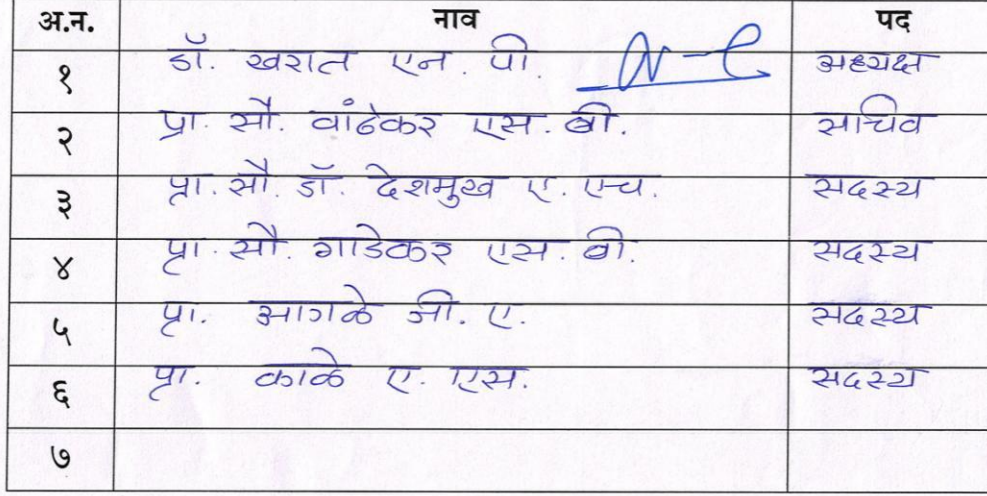 अ.न. नाव पद
१ डॉ. खरात एन. पी. अध्यक्ष
२ प्रा. सौ. वांढेकर एस. बी. सचिव
३ प्रा. सौ. डॉ. देशमुख ए. एच. सदस्य
४ प्रा. सौ. गाडेकर एस. बी. सदस्य
५ प्रा. आगळे जी. ए. सदस्य
६ प्रा. काळे ए. एस. सदस्य
७